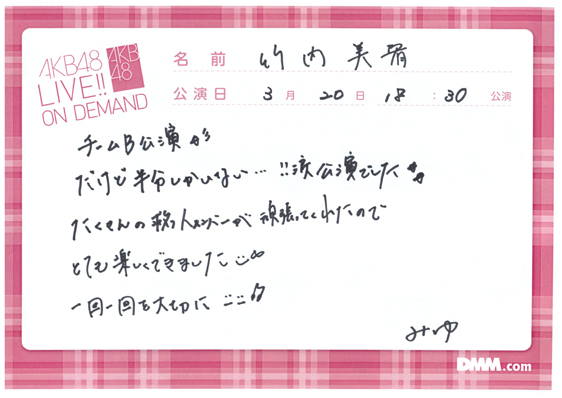 AKB48
LIVE!!
ON DEMAND
AKB
48
名前 竹内美宥
公演日 3月20日 18:30 公演
チームB公演が
だけど半分しかいない…!!涙公演でした
たくさんの移メンバーが頑張ってくれたので
とても楽しくできました
一回一回を大切に
みゆ
DMM.com